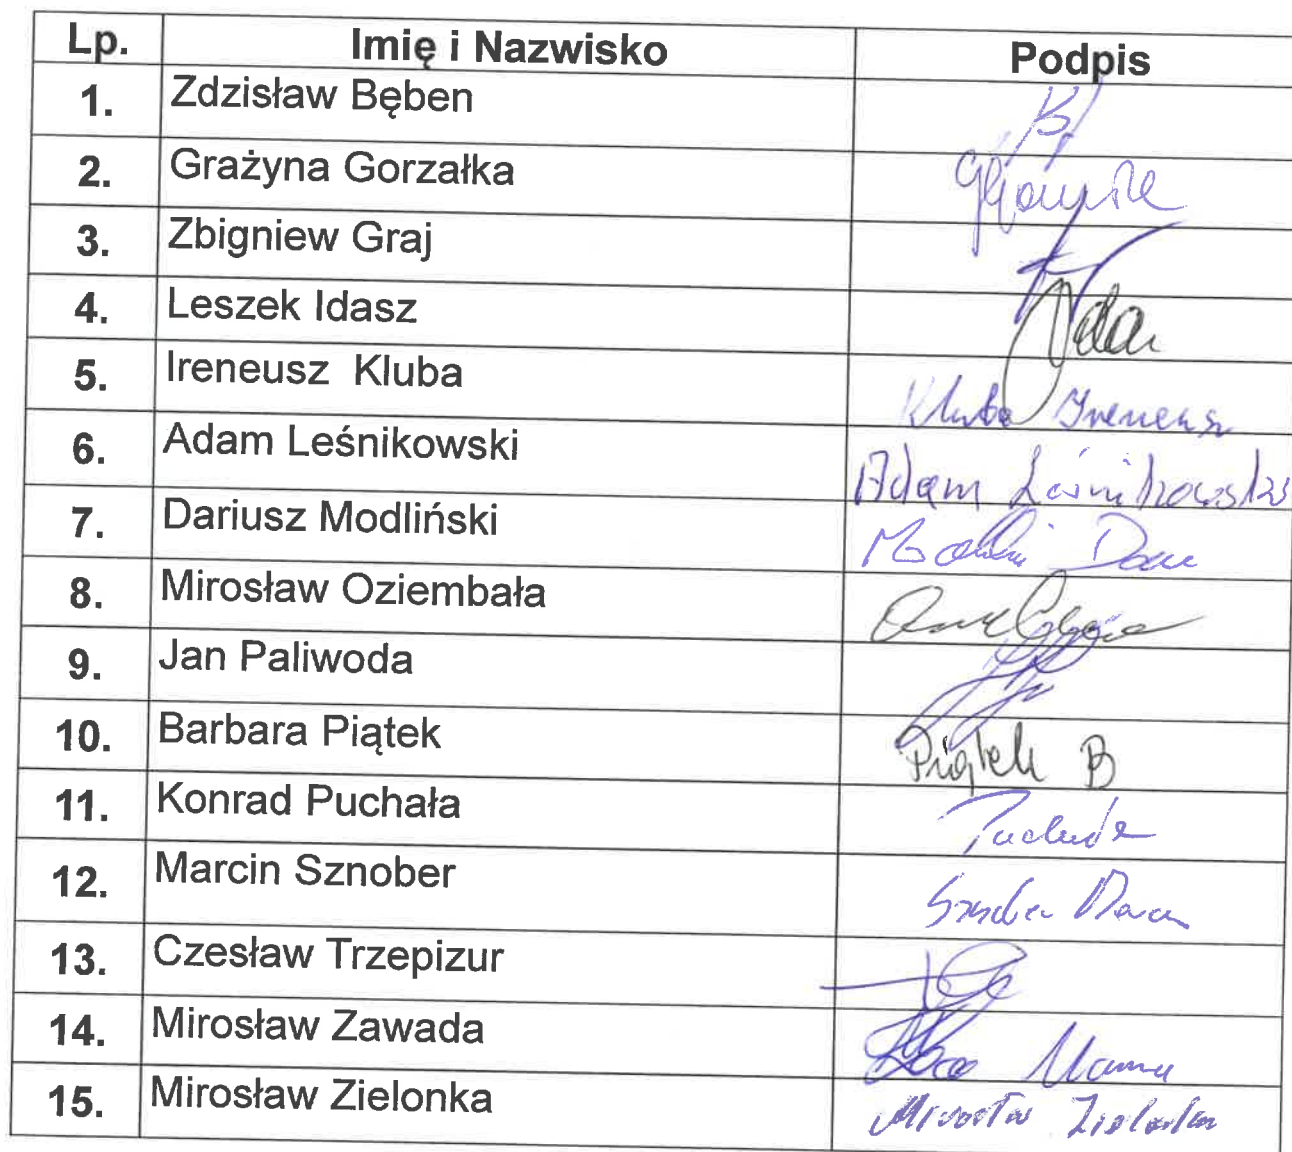 Lp. Imię i Nazwisko Podpis
1. Zdzisław Bęben
2. Grażyna Gorzałka
3. Zbigniew Graj
4. Leszek Idasz
5. Ireneusz Kluba Kluba Ireneusz
6. Adam Leśnikowski Adam Leśnikowski
7. Dariusz Modliński
8. Mirosław Oziembała
9. Jan Paliwoda
10. Barbara Piątek Piątek B
11. Konrad Puchała
12. Marcin Sznober
13. Czesław Trzepizur
14. Mirosław Zawada
15. Mirosław Zielonka Mirosław Zielonka